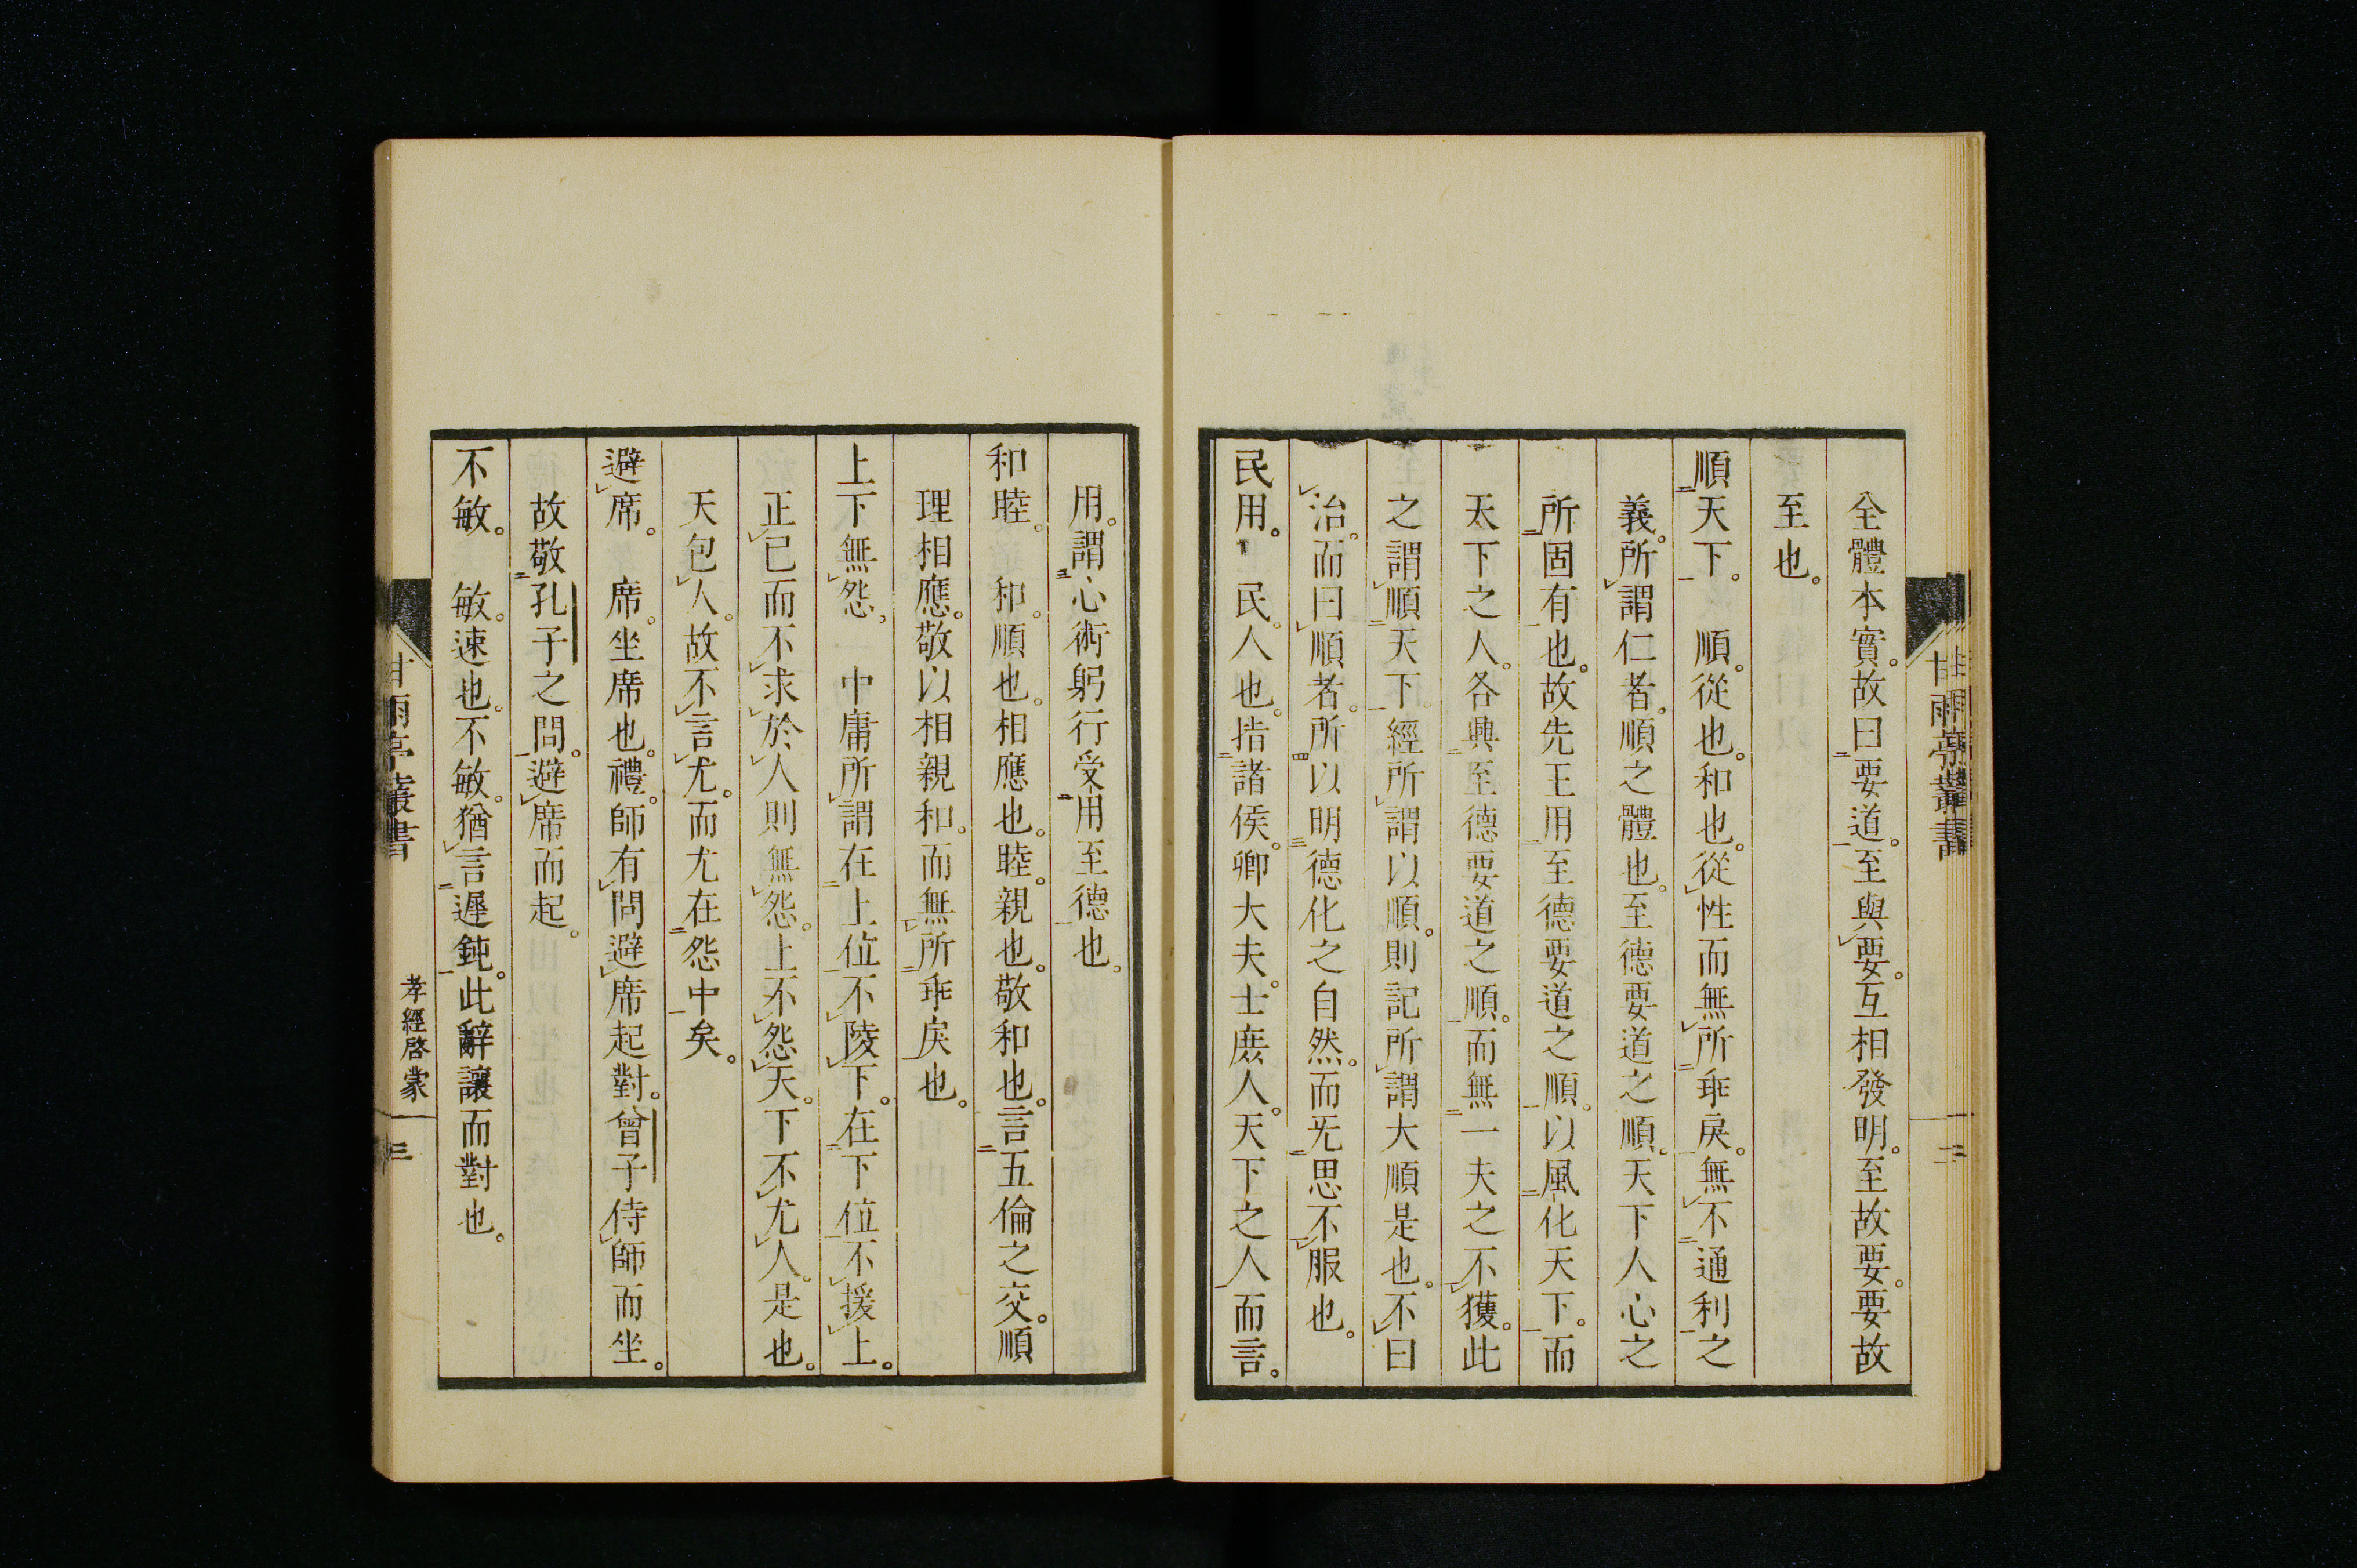 全體本實。故曰要道。至與要。互相發明。至故要。要故
至也。
順天下。順。從也。和也。從性而無所乖戾。無不通利之
義。所謂仁者。順之體也。至德要道之順。天下人心之
所固有也。故先王用至德要道之順。以風化天下。而
天下之人。各興至德要道之順。而無一夫之不獲。此
之謂順天下。經所謂以順。則記所謂大順是也。不曰
治。而曰順者。所以明德化之自然。而无思不服也。
民用。民。人也。指諸侯。卿大夫。士庶人。天下之人而言。
甘雨亭叢書
二
用。謂心術躬行受用至德也。
和睦。和。順也。相應也。睦。親也。敬和也。言五倫之交。順
理相應。敬以相親和。而無所乖戾也。
上下無怨。中庸所謂在上位不陵下。在下位不援上。
正已而不求於人則無怨。上不怨天。下不尤人。是也。
天包人。故不言尤。而尤在怨中矣。
避席。席。坐席也。禮。師有問避席起對。曾子侍師而坐。
故敬孔子之問。避席而起。
不敏。敏。速也。不敏。猶言遲鈍。此辭讓而對也。
甘雨亭叢書
孝經啓蒙
三